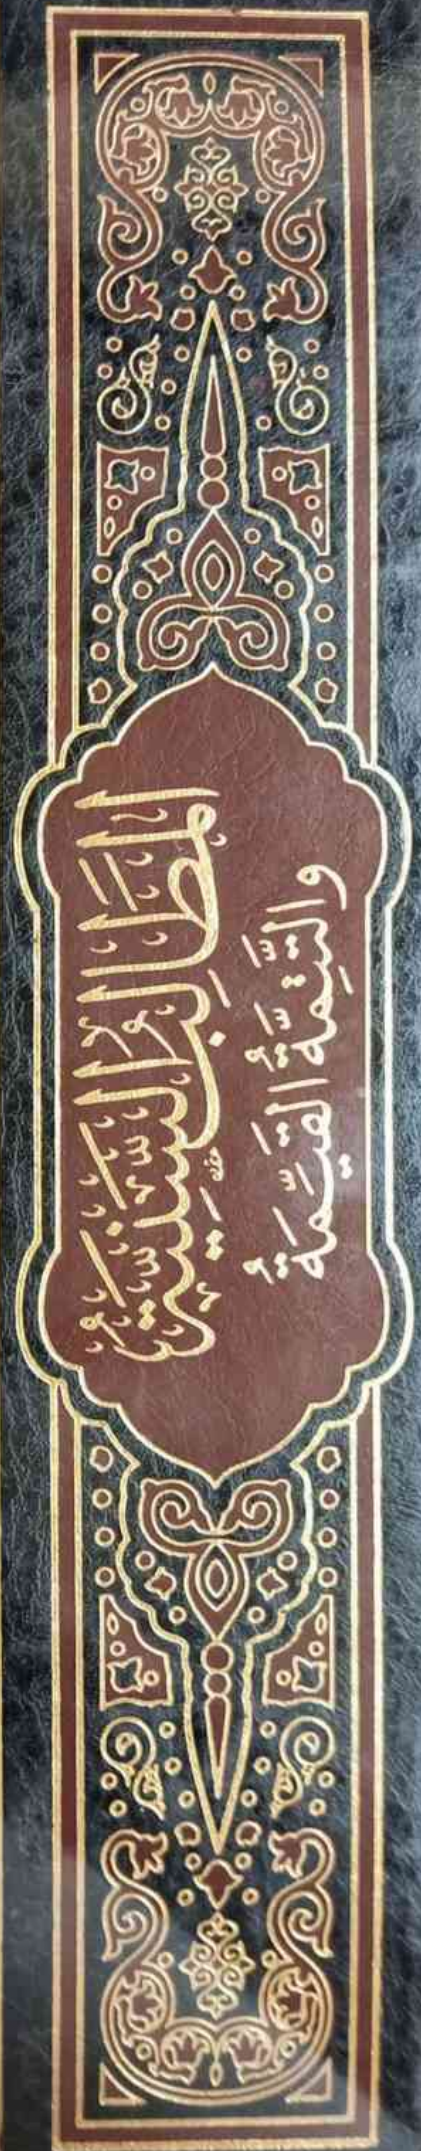 المَطَالِبُ السَّنِيَّةُ
والتَّتِمَّةُ القَيِّمَةُ